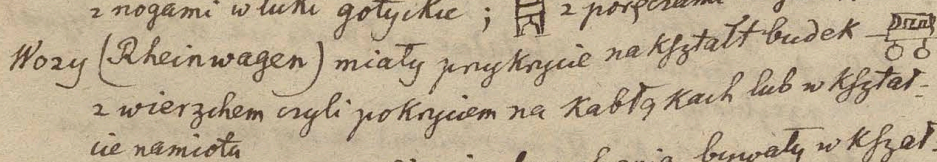 z nogami w łuki gotyckie ; z poręczami
Wozy (Rheinwagen) miały przykrycie na kształt budek
z wierzchem czyli pokryciem na kabłąkach lub w kształ-
cie namiotu
bywały w kształ-